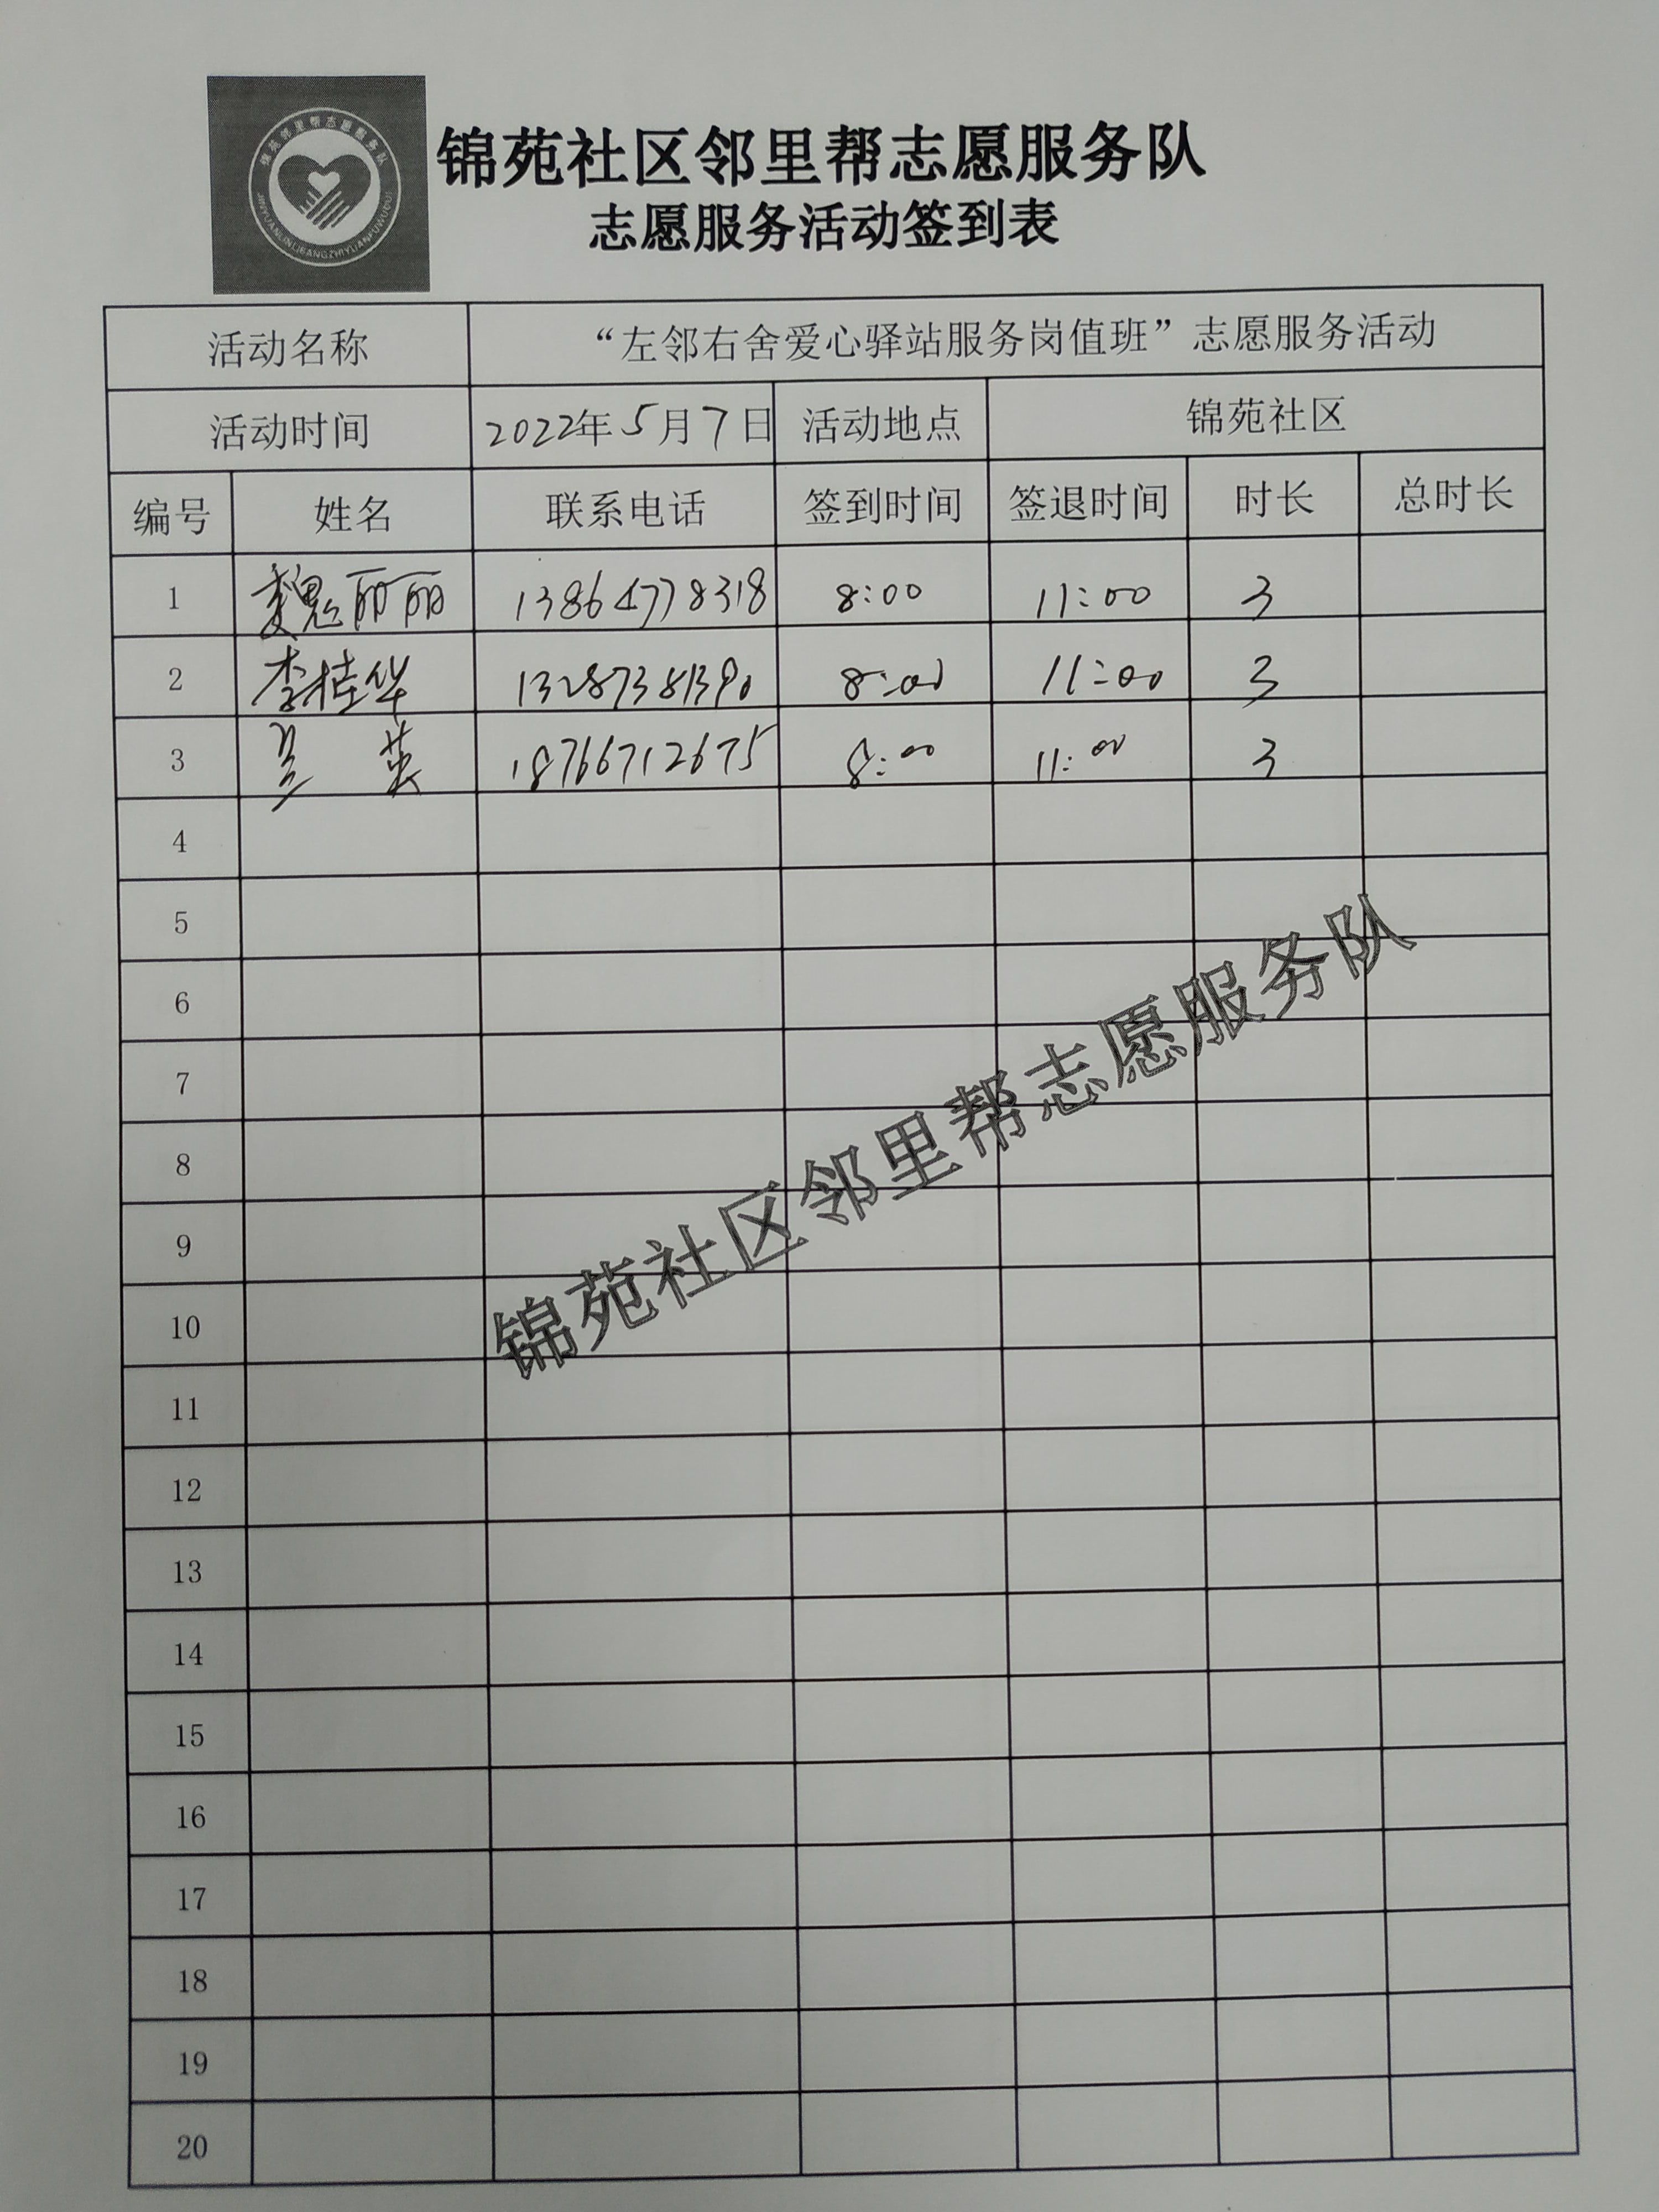 锦苑邻里帮志愿服务队
JINYUANLINLIBANGZHIYUANFUWUDUI
锦苑社区邻里帮志愿服务队
志愿服务活动签到表
活动名称 “左邻右舍爱心驿站服务岗值班”志愿服务活动
活动时间 2022年5月7日 活动地点 锦苑社区
编号 姓名 联系电话 签到时间 签退时间 时长 总时长
1 魏丽丽 13864778318 8:00 11:00 3
2 李桂华 13287381390 8:00 11:00 3
3 英 18766712675 8:00 11:00 3
4
5
6
7
8
9
10
11
12
13
14
15
16
17
18
19
20
锦苑社区邻里帮志愿服务队